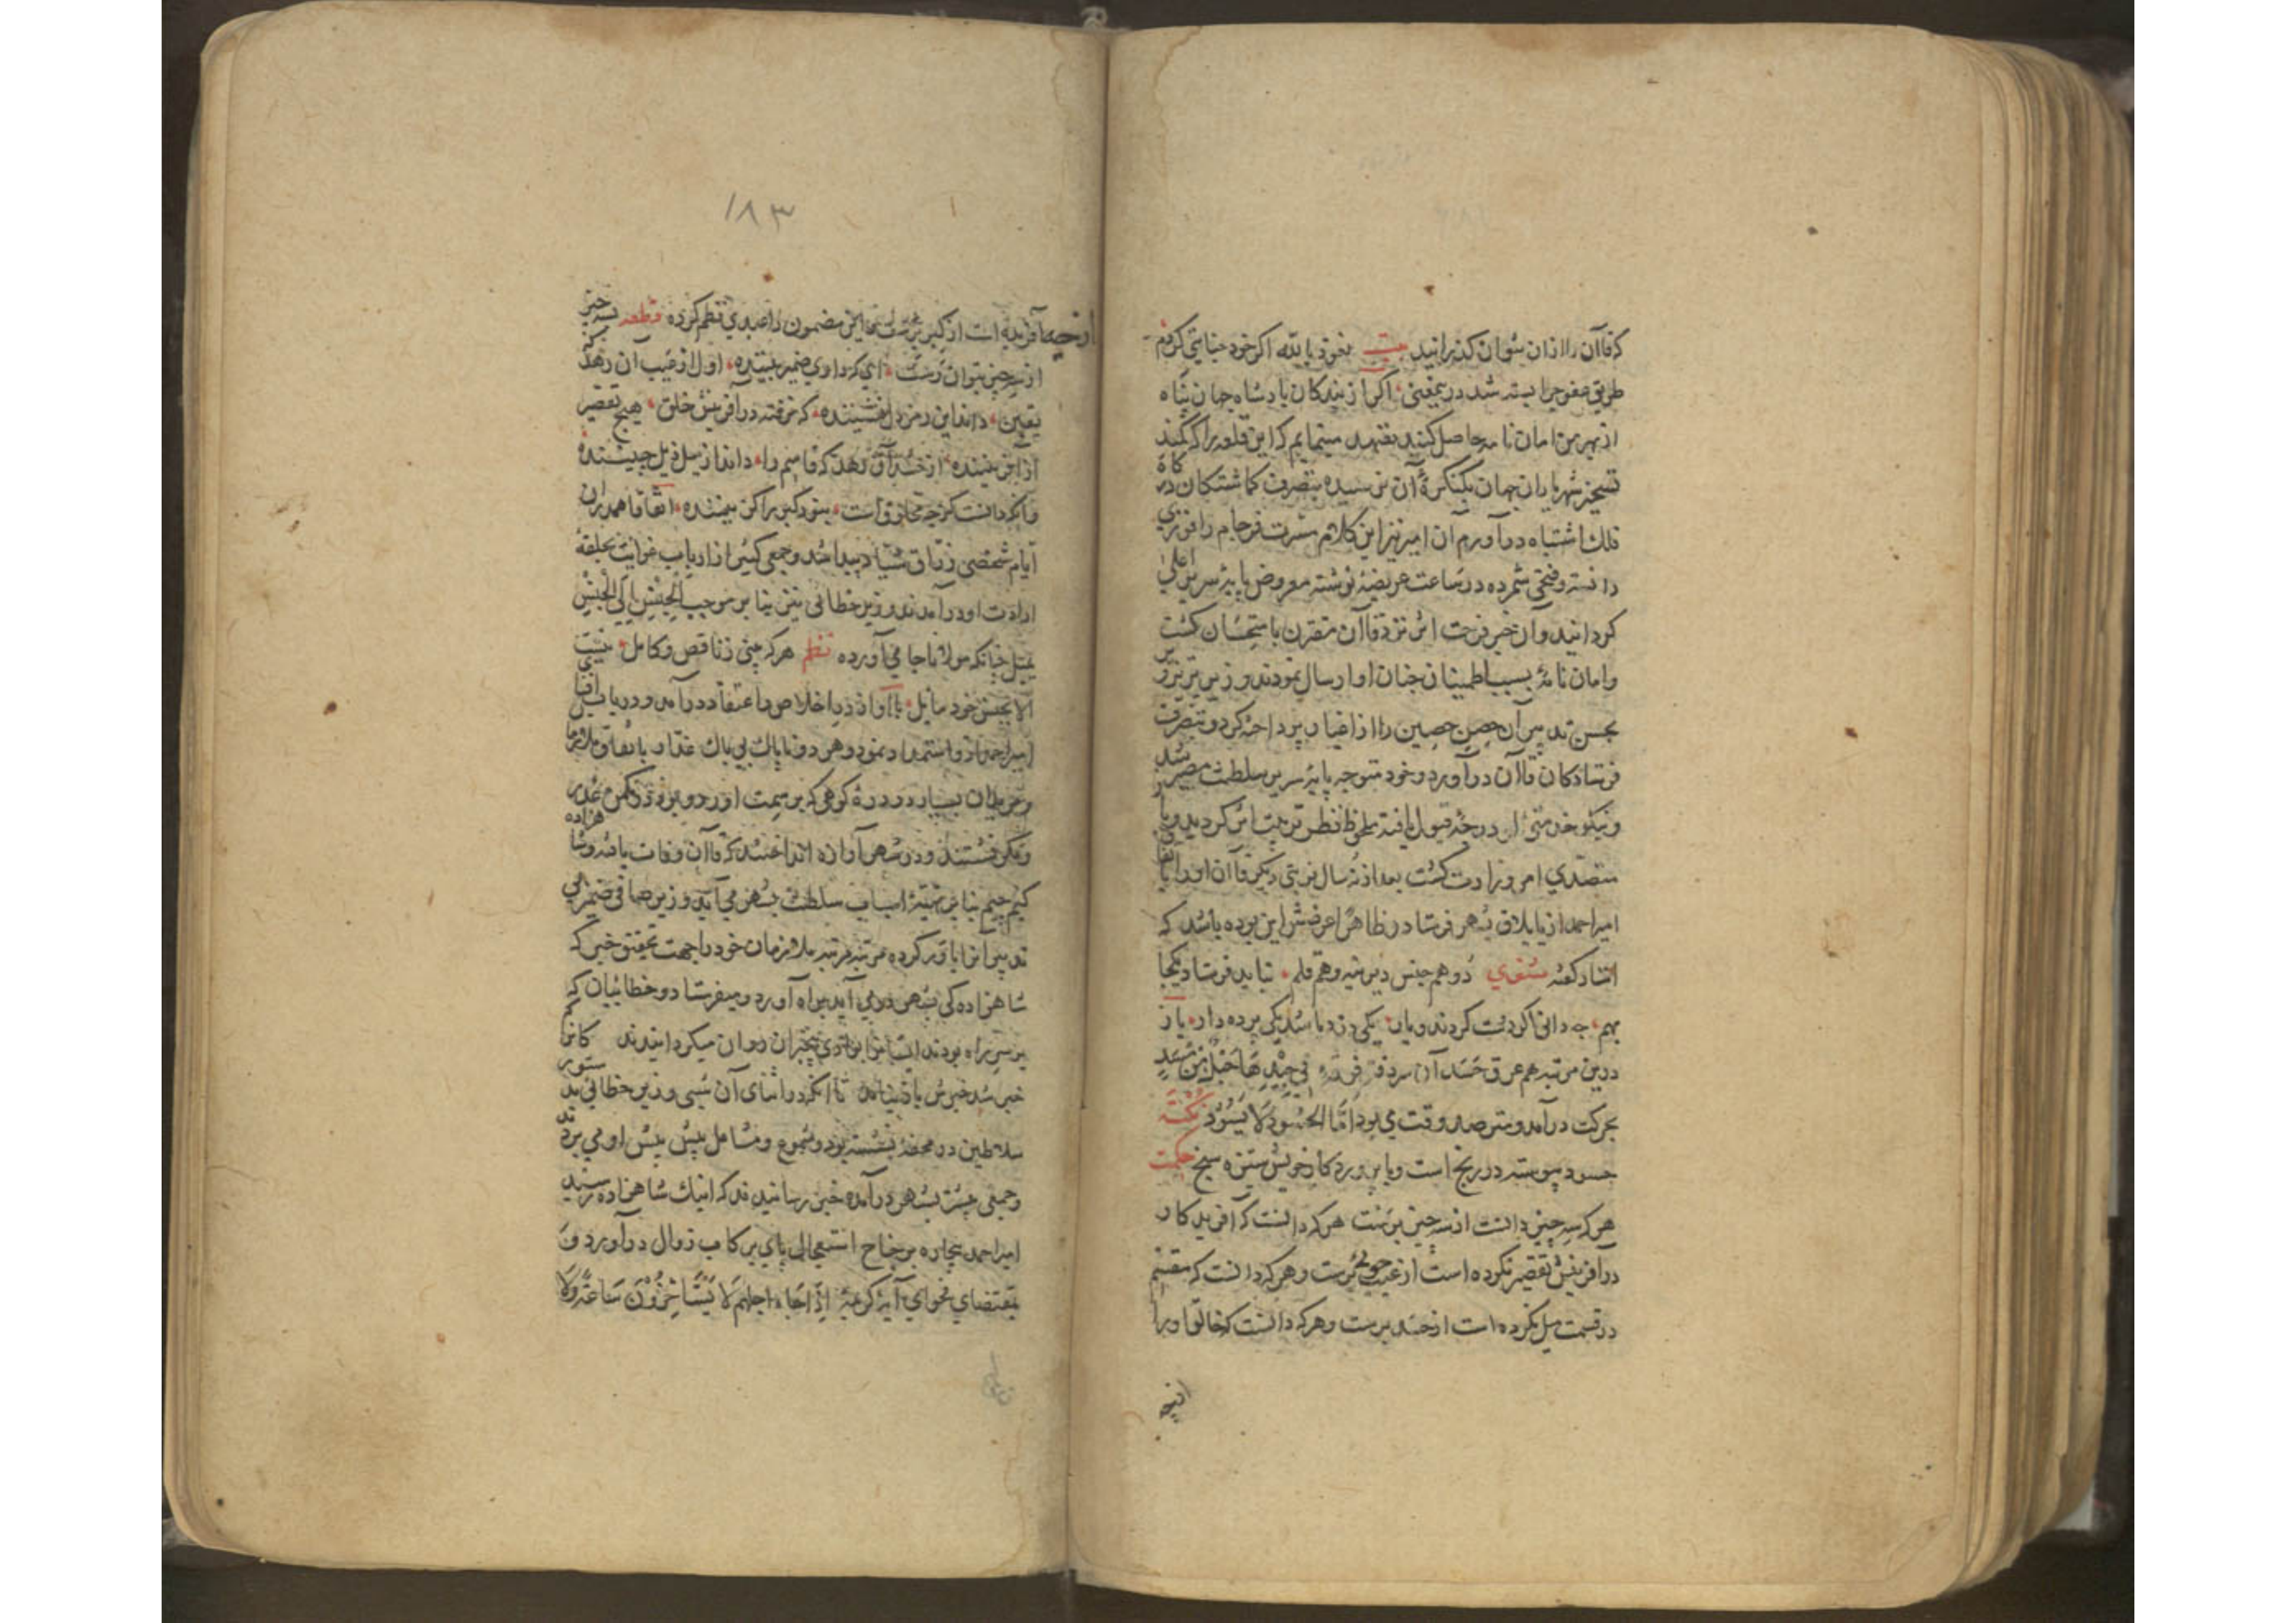 که قاآن را از ان بتوان کذرانید بیت نعوذ بالله اکر خود جنایتی کردم
طریق عفو چرا بسته شد در یمعنی اکر از بندکان پادشاه جهان پناه
از بهر من امان نامه حاصل کنند تعهد مینمایم که این قلعه را که کمند
تسخیر شهریاران جهان بکنکرهٔ آن نرسیده بتصرف کماشتکان درکاه
فلک اشتباه در آورم آن امیر نیز این کلام مسرت فرجام را فوزی
دانسته و فتحی شمرده در ساعت عریضهٔ نوشته معروض پایهٔ سریر اعلی
کردانید و آن خبر فرحت اثر نزد قاآن مقرن باستحسان کشت
و امان نامهٔ بسبب اطمینان جنان او ارسال نمودند و زیر
بحسن تدبیر آن حصن حصین را از اغیار پرداخته کرد و بتصرف
فرستادکان قاآن در آورد و خود متوجه پایهٔ سریر سلطنت مصیر شد
و نیکو خدمتی او درجهٔ قبول یافته ملحوظ نظر تربیت اثر کردید و با
متصدی امر وزارت کشت بعد از نه سال نوبتی دیکر قاآن او را باتفاق
امیر احمد از ییلاق بشهر فرستاد و ظاهرا غرضش این بوده باشد که
استاد کفته مثنوی دو هم جنس دیرینه و هم قلم نباید فرستاد یکجا
بهم چه دانی که همدست کردند و یار یکی دزد باشد یکی پرده دار باز
درین مرتبه هم عرق حسد آن سردفتر فی جیدها حبل من مسد
بحرکت در آمد و مترصد وقت می بود امّا الحسود لا یسود نکته
حسود پیوسته در رنج است و با پروردکار خویش ستیزه سنج حکمت
هر که سه چیز دانست از سه چیز برست هر که دانست که آفریدکار
در آفرینش تقصیر نکرده است از عیب جوئی برست و هر که دانست که مقسّم
در قسمت میل نکرده است از حسد برست و هر که دانست که خالق او را
ازچه
١٨٣
ازچه آفریده است از کبر برست این مضمون را عبدی نظم کرده قطعه سه چیز
از سه چیز بتوان رست ای که داری ضمیر بیننده اول از عیب آن رهد که
یقین داند این رمز دل نشیننده که نرفته در آفرینش خلق هیچ تقصیر
از آفریننده از حسد آن رهد که قاسم را داند از میل ذیل چیننده
وانکه دانست کز چه مخلوق است نبود کبر را کزیننده اتفاقا همدران
ایام شخصی زرّاق شیّاد پیدا شد و جمعی کثیر از ارباب غوایت بحلقهٔ
ارادت او در آمدند و وزیر خطائی نیز بنا بر موجب الجنس الی الجنس
یمیل چنانکه مولانا جامی آورده نظم هر که بینی ز ناقص و کامل نیست
الا بجنس خود مایل با او از در اخلاص و اعتقاد در آمد و در باب افنای
امیر احمد ازو استمداد نمود و هر دو ناپاک بی باک غدّار باتفاق ملازمان
و مریدان بسیار در درهٔ کوهی که بر سمت اوردو بود در کمین غدر
و مکر نشستند و در شهر آوازه انداختند که قاآن وفات یافته و شاهزاده
کیم چیم بنا بر تهیهٔ اسباب سلطنت بشهر می آید وزیر صافی ضمیر این
تدبیر اورا باور کرده مرتبه مرتبه ملازمان خود را جهت تحقیق خبر که
شاهزاده کی بشهر در می آید براه آورد و میفرستاد و خطائیان که
بر سر راه بودند ایشانرا بوادی بیخبران روان میکردانیدند کانرا که
خبر شد خبرش باز نیامد تا آنکه در اثنای آن شبی وزیر خطائی بدستور
سلاطین در محفهٔ نشسته بود و شموع و مشاعل پیش پیش او می بردند
و جمعی پیشتر بشهر در آمده خبر رسانیدند که اینک شاهزاده رسید
امیر احمد بیچاره بر جناح استعجال پای بر کاب زوال در آورد و
بمقتضای فحوای آیهٔ کریمهٔ اذا جاء اجلهم لا یستاخرون ساعة ولا